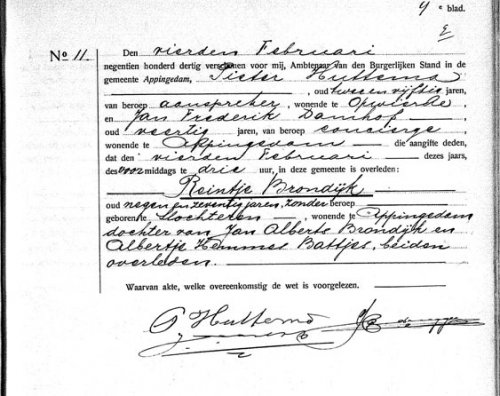 4e blad.
No 11.
Den vierden Februari
negentien honderd dertig verschenen voor mij, Ambtenaar van den Burgerlijken Stand in de
gemeente Appingedam, Pieter Huttema
, oud twee en vijftig jaren,
van beroep aanspreker, wonende te Opwierde, en
Jan Frederik Damhof
oud veertig jaren, van beroep conciërge
wonende te Appingedam die aangifte deden,
dat den vierden Februari dezes jaars,
des voormiddags te drie uur, in deze gemeente is overleden:
Reintje Brondijk
oud negen en zeventig jaren, zonder beroep
geboren te Slochteren, wonende te Appingedam
dochter van Jan Alberts Brondijk en
Albertje Hemmes Battjes, beiden
overleden.
Waarvan akte, welke overeenkomstig de wet is voorgelezen.
P Huttema